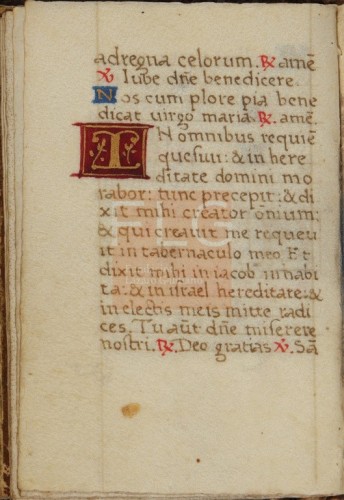 ad regna celorum. ℟. amē
℣. Iube dn̄e benedicere.
Nos cum plore pia bene
dicat virgo maria. ℟. amē.
IN omnibus requiē
quesiui: & in here
ditate domini mo
rabor: tunc precepit: & di
xit mihi creator om̄nium:
& qui creauit me requeu
it in tabernaculo meo. Et
dixit mihi in iacob inhabi
ta: & in israel hereditare: &
in electis meis mitte radi
ces. Tu aūt dn̄e miserere
nostri. ℟. Deo gratias ℣. Sā